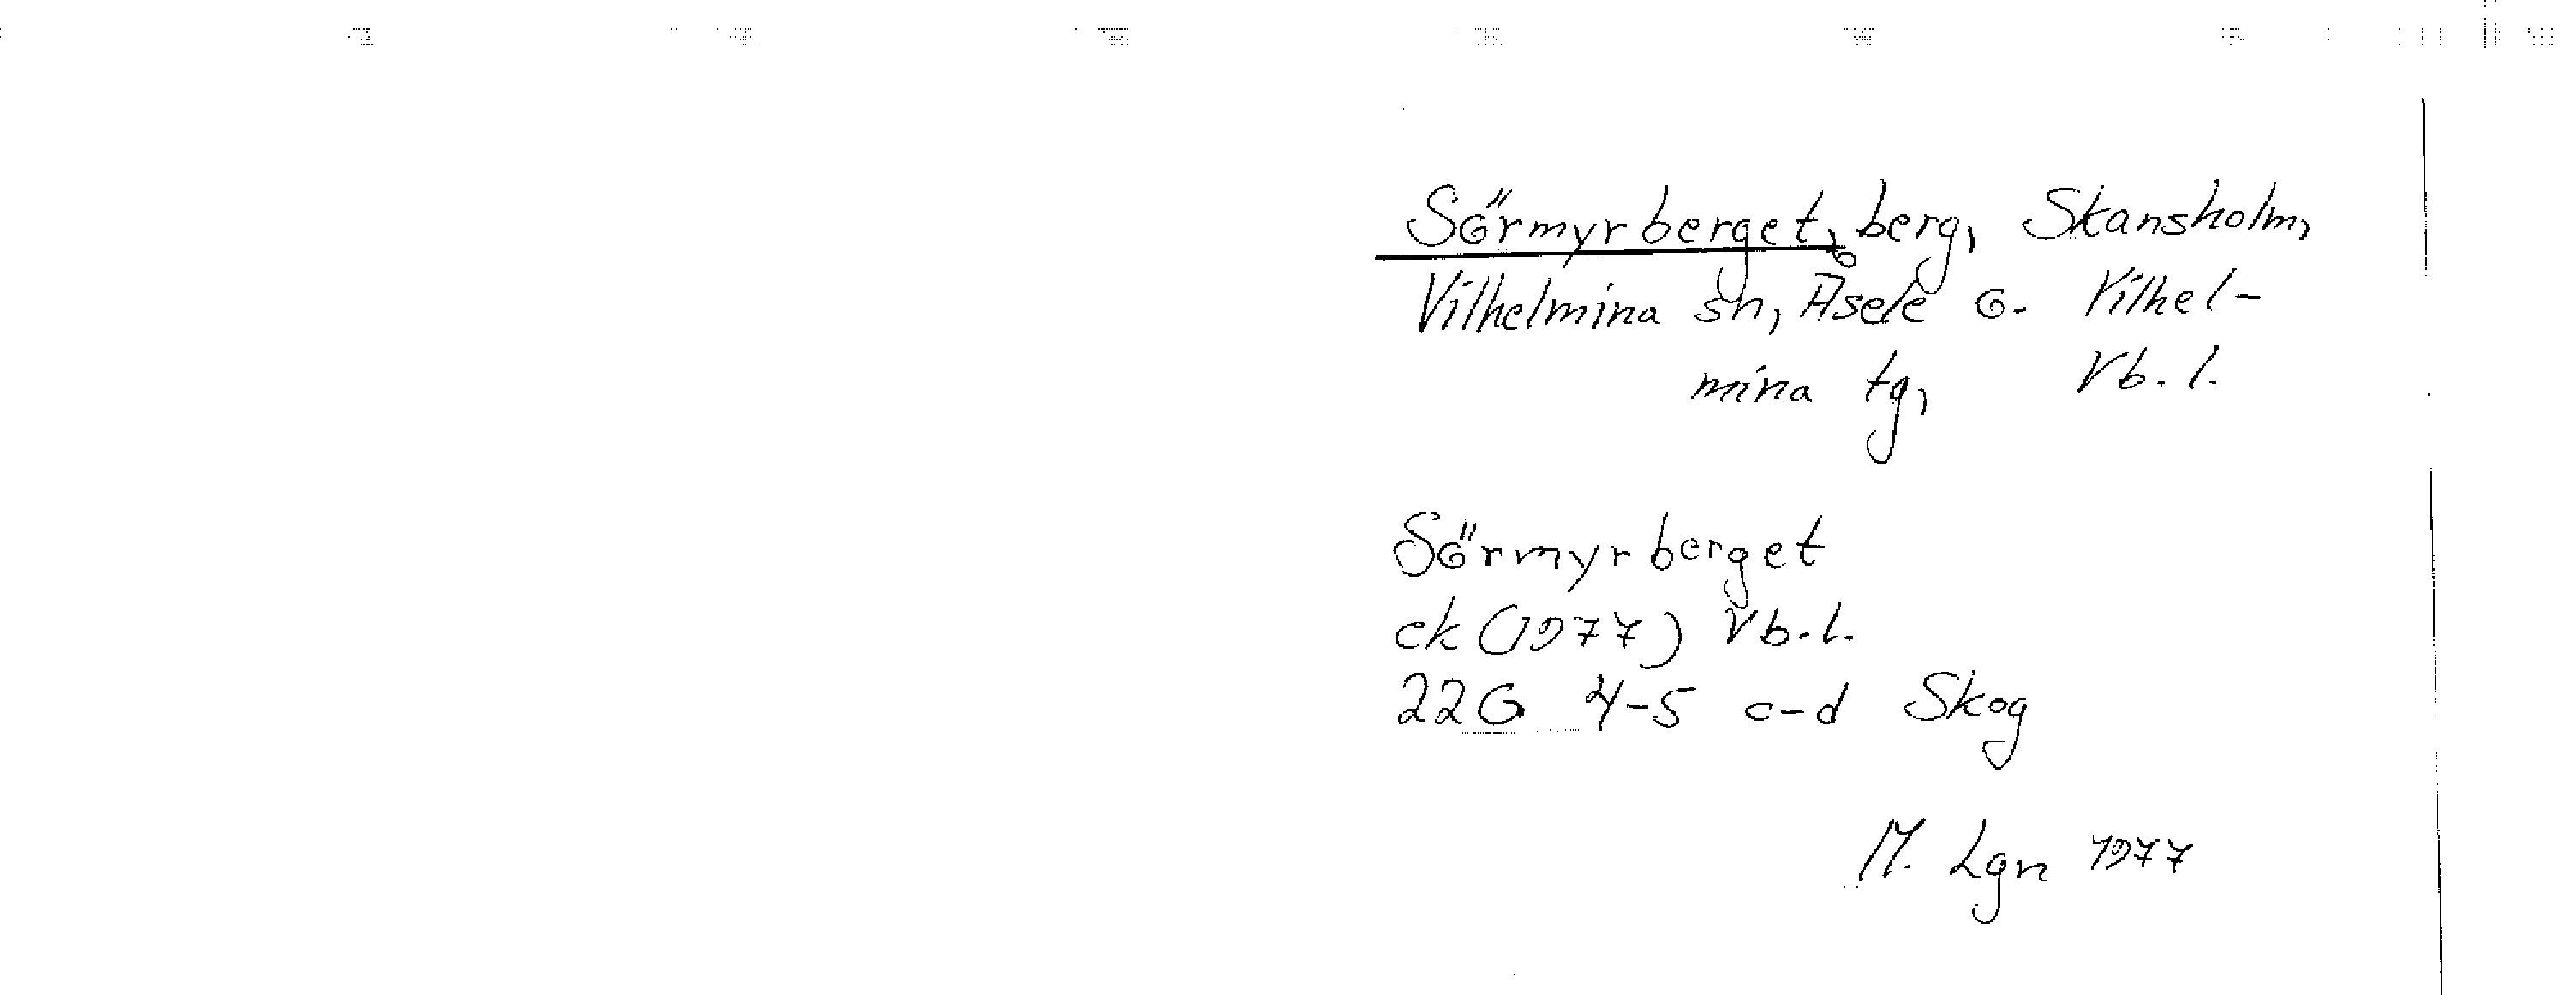 Sörmyrberget, berg, Skansholm,
Vilhelmina sn, Åsele o. Vilhel-
mina tg, Vb. l.
Sörmyrberget
ek (1977) Vb. l.
22G 4-5 c-d Skog
M. Lgn 1977